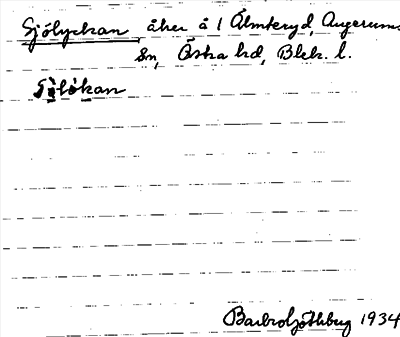 Sjölyckan åker å 1 Älmteryd, Augerums
Sn, Östra hd, Blek. l.
Barbro Götlberg 1934